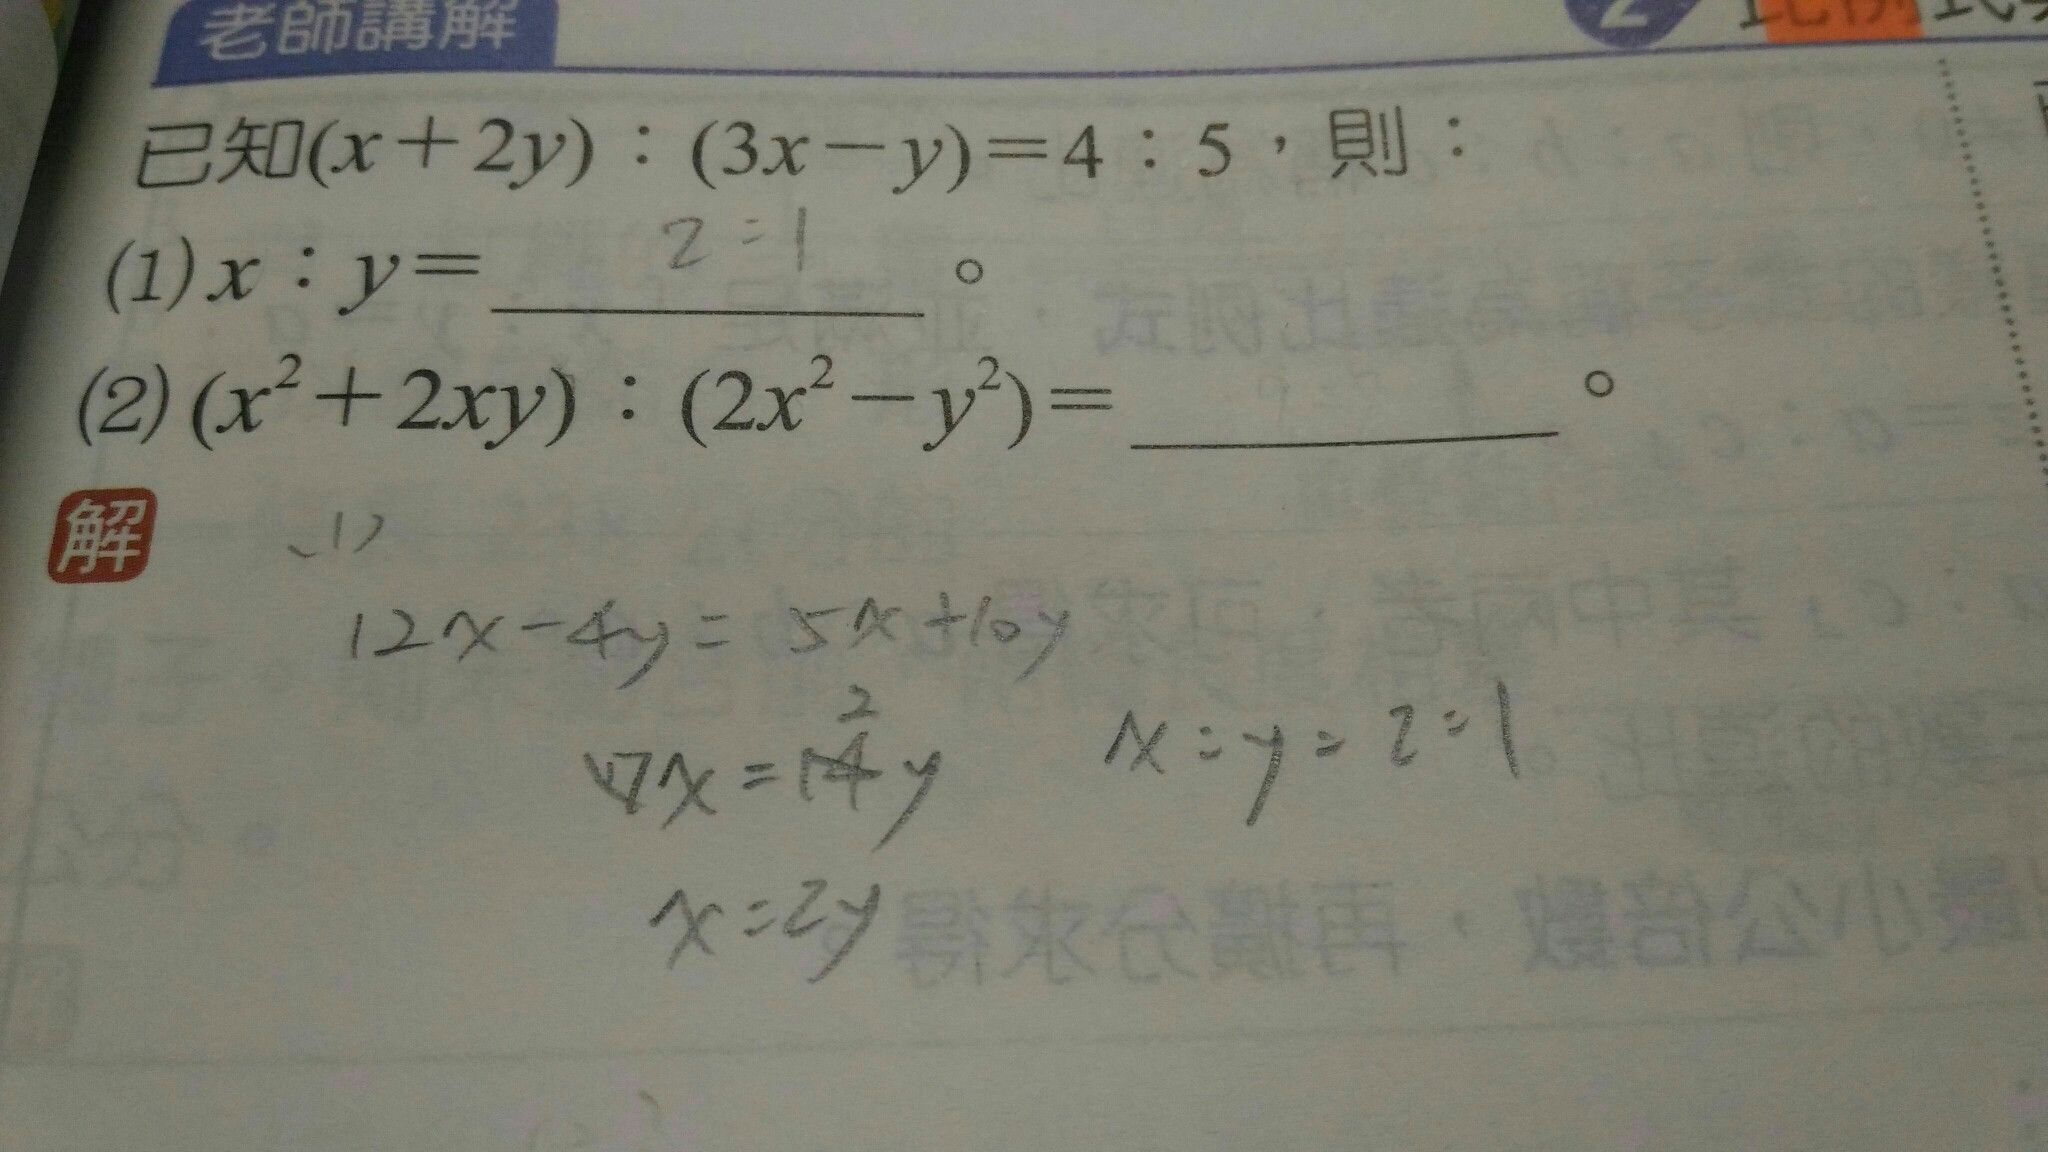 老師講解
2 比例式
已知(x+2y)：(3x－y)＝4：5，則：
(1) x：y＝ 2:1 。
(2) (x²＋2xy)：(2x²－y²)＝ 。
解
(1)
12x-4y=5x+10y
7x=14y 2
x:y=2:1
x=2y